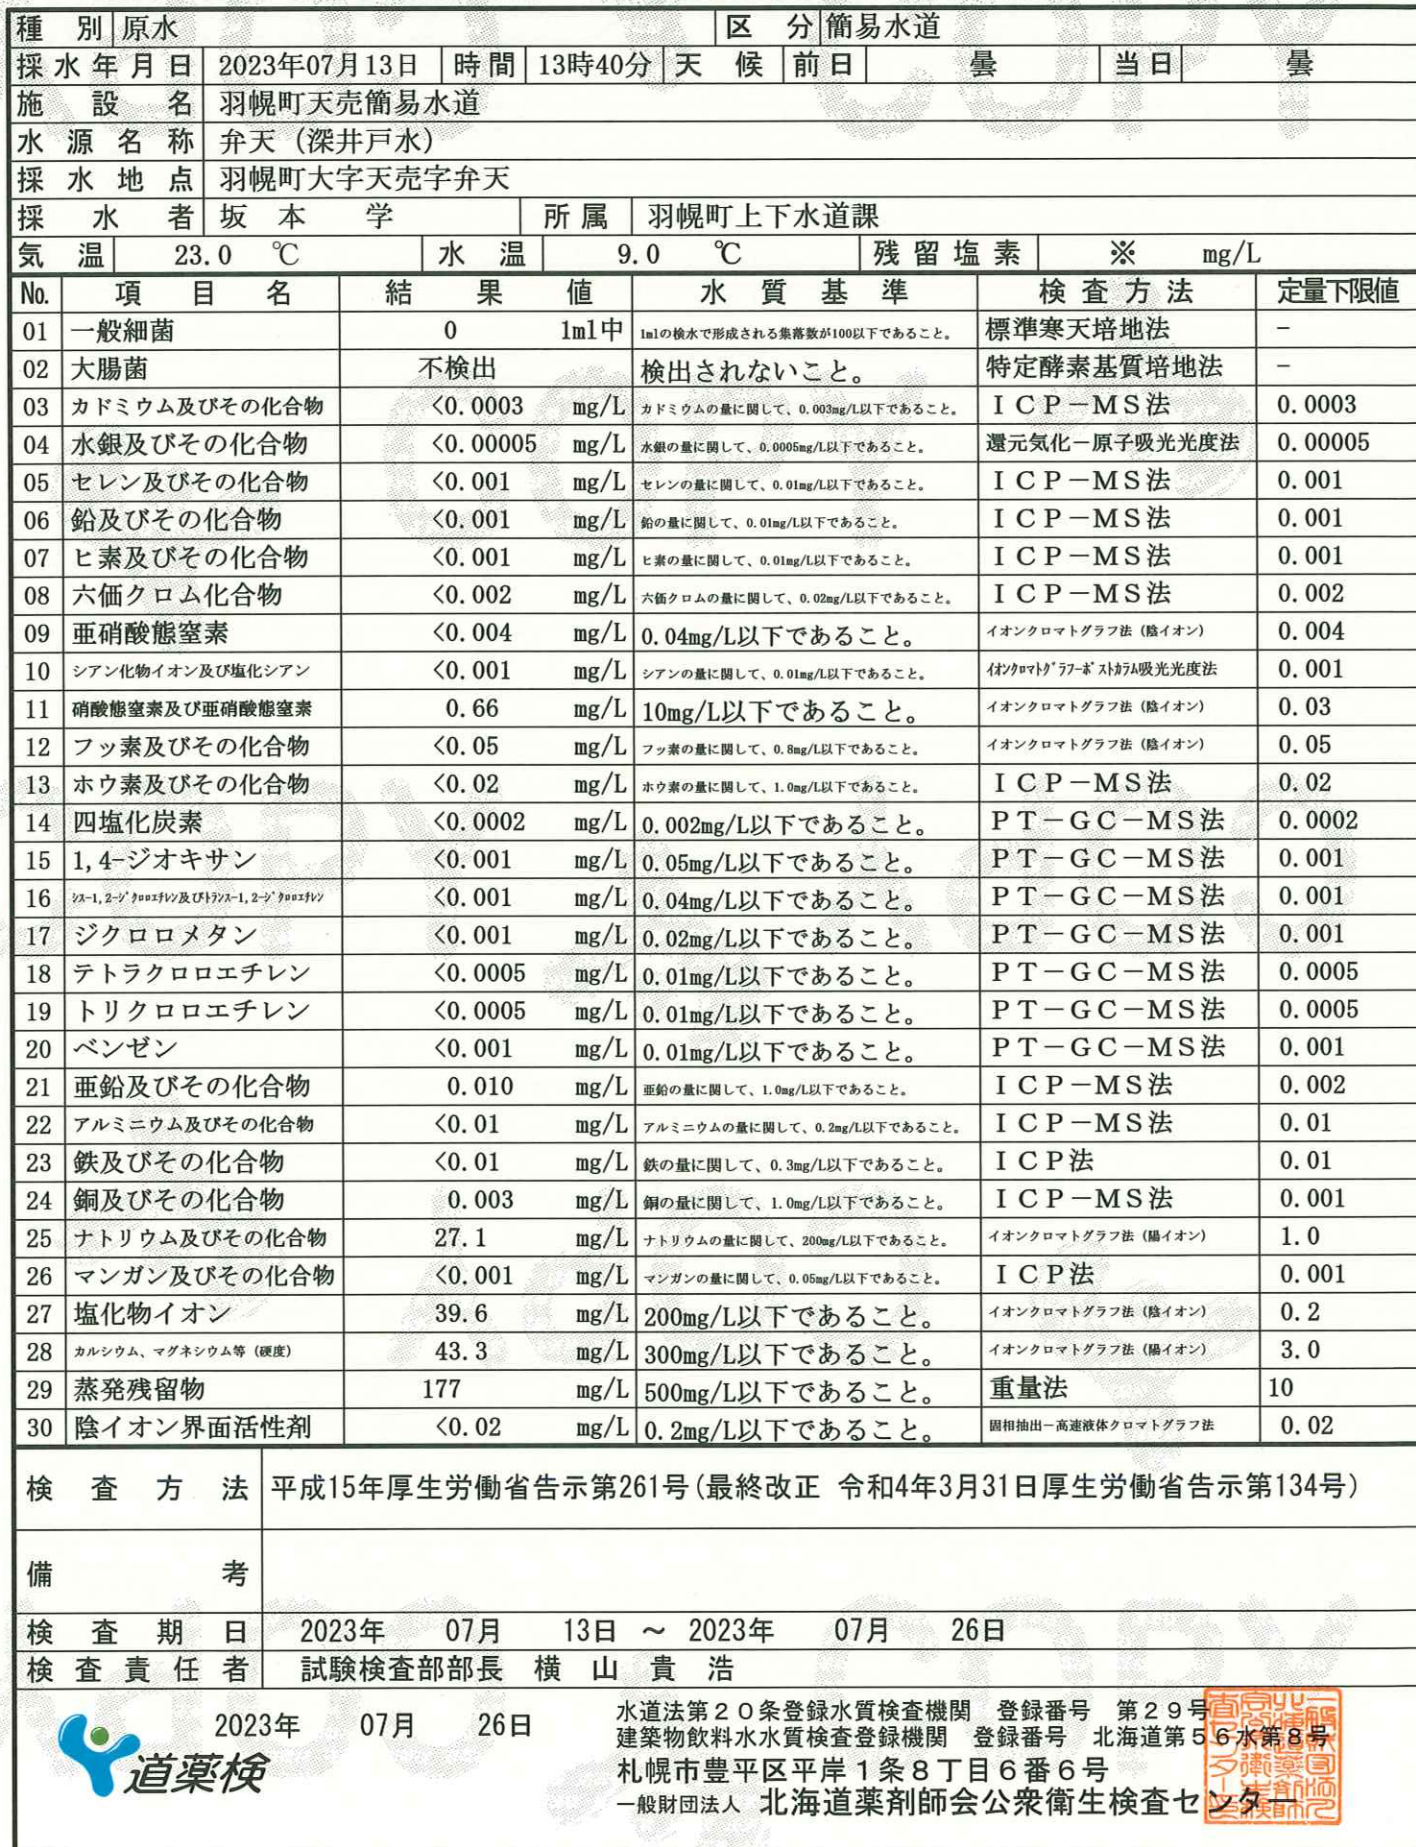 種別 原水 区分 簡易水道
採水年月日 2023年07月13日 時間 13時40分 天候 前日 曇 当日 曇
施設名 羽幌町天売簡易水道
水源名称 弁天（深井戸水）
採水地点 羽幌町大字天売字弁天
採水者 坂本 学 所属 羽幌町上下水道課
気温 23.0 ℃ 水温 9.0 ℃ 残留塩素 ※ mg/L
No. 項目名 結果値 水質基準 検査方法 定量下限値
01 一般細菌 0 1ml中 1mlの検水で形成される集落数が100以下であること。 標準寒天培地法 −
02 大腸菌 不検出 検出されないこと。 特定酵素基質培地法 −
03 カドミウム及びその化合物 <0.0003 mg/L カドミウムの量に関して、0.003mg/L以下であること。 ＩＣＰ－ＭＳ法 0.0003
04 水銀及びその化合物 <0.00005 mg/L 水銀の量に関して、0.0005mg/L以下であること。 還元気化－原子吸光光度法 0.00005
05 セレン及びその化合物 <0.001 mg/L セレンの量に関して、0.01mg/L以下であること。 ＩＣＰ－ＭＳ法 0.001
06 鉛及びその化合物 <0.001 mg/L 鉛の量に関して、0.01mg/L以下であること。 ＩＣＰ－ＭＳ法 0.001
07 ヒ素及びその化合物 <0.001 mg/L ヒ素の量に関して、0.01mg/L以下であること。 ＩＣＰ－ＭＳ法 0.001
08 六価クロム化合物 <0.002 mg/L 六価クロムの量に関して、0.02mg/L以下であること。 ＩＣＰ－ＭＳ法 0.002
09 亜硝酸態窒素 <0.004 mg/L 0.04mg/L以下であること。 イオンクロマトグラフ法（陰イオン） 0.004
10 シアン化物イオン及び塩化シアン <0.001 mg/L シアンの量に関して、0.01mg/L以下であること。 ｲｵﾝｸﾛﾏﾄｸﾞﾗﾌ-ﾎﾟｽﾄｶﾗﾑ吸光光度法 0.001
11 硝酸態窒素及び亜硝酸態窒素 0.66 mg/L 10mg/L以下であること。 イオンクロマトグラフ法（陰イオン） 0.03
12 フッ素及びその化合物 <0.05 mg/L フッ素の量に関して、0.8mg/L以下であること。 イオンクロマトグラフ法（陰イオン） 0.05
13 ホウ素及びその化合物 <0.02 mg/L ホウ素の量に関して、1.0mg/L以下であること。 ＩＣＰ－ＭＳ法 0.02
14 四塩化炭素 <0.0002 mg/L 0.002mg/L以下であること。 ＰＴ－ＧＣ－ＭＳ法 0.0002
15 1,4-ジオキサン <0.001 mg/L 0.05mg/L以下であること。 ＰＴ－ＧＣ－ＭＳ法 0.001
16 ｼｽ-1,2-ｼﾞｸﾛﾛｴﾁﾚﾝ及びﾄﾗﾝｽ-1,2-ｼﾞｸﾛﾛｴﾁﾚﾝ <0.001 mg/L 0.04mg/L以下であること。 ＰＴ－ＧＣ－ＭＳ法 0.001
17 ジクロロメタン <0.001 mg/L 0.02mg/L以下であること。 ＰＴ－ＧＣ－ＭＳ法 0.001
18 テトラクロロエチレン <0.0005 mg/L 0.01mg/L以下であること。 ＰＴ－ＧＣ－ＭＳ法 0.0005
19 トリクロロエチレン <0.0005 mg/L 0.01mg/L以下であること。 ＰＴ－ＧＣ－ＭＳ法 0.0005
20 ベンゼン <0.001 mg/L 0.01mg/L以下であること。 ＰＴ－ＧＣ－ＭＳ法 0.001
21 亜鉛及びその化合物 0.010 mg/L 亜鉛の量に関して、1.0mg/L以下であること。 ＩＣＰ－ＭＳ法 0.002
22 アルミニウム及びその化合物 <0.01 mg/L アルミニウムの量に関して、0.2mg/L以下であること。 ＩＣＰ－ＭＳ法 0.01
23 鉄及びその化合物 <0.01 mg/L 鉄の量に関して、0.3mg/L以下であること。 ＩＣＰ法 0.01
24 銅及びその化合物 0.003 mg/L 銅の量に関して、1.0mg/L以下であること。 ＩＣＰ－ＭＳ法 0.001
25 ナトリウム及びその化合物 27.1 mg/L ナトリウムの量に関して、200mg/L以下であること。 イオンクロマトグラフ法（陽イオン） 1.0
26 マンガン及びその化合物 <0.001 mg/L マンガンの量に関して、0.05mg/L以下であること。 ＩＣＰ法 0.001
27 塩化物イオン 39.6 mg/L 200mg/L以下であること。 イオンクロマトグラフ法（陰イオン） 0.2
28 カルシウム、マグネシウム等（硬度） 43.3 mg/L 300mg/L以下であること。 イオンクロマトグラフ法（陽イオン） 3.0
29 蒸発残留物 177 mg/L 500mg/L以下であること。 重量法 10
30 陰イオン界面活性剤 <0.02 mg/L 0.2mg/L以下であること。 固相抽出－高速液体クロマトグラフ法 0.02
検査方法 平成15年厚生労働省告示第261号(最終改正 令和4年3月31日厚生労働省告示第134号)
備考
検査期日 2023年 07月 13日 ～ 2023年 07月 26日
検査責任者 試験検査部部長 横山貴浩
2023年 07月 26日
道薬検
水道法第２０条登録水質検査機関 登録番号 第２９号
建築物飲料水水質検査登録機関 登録番号 北海道第５６水第８号
札幌市豊平区平岸１条８丁目６番６号
一般財団法人 北海道薬剤師会公衆衛生検査センター